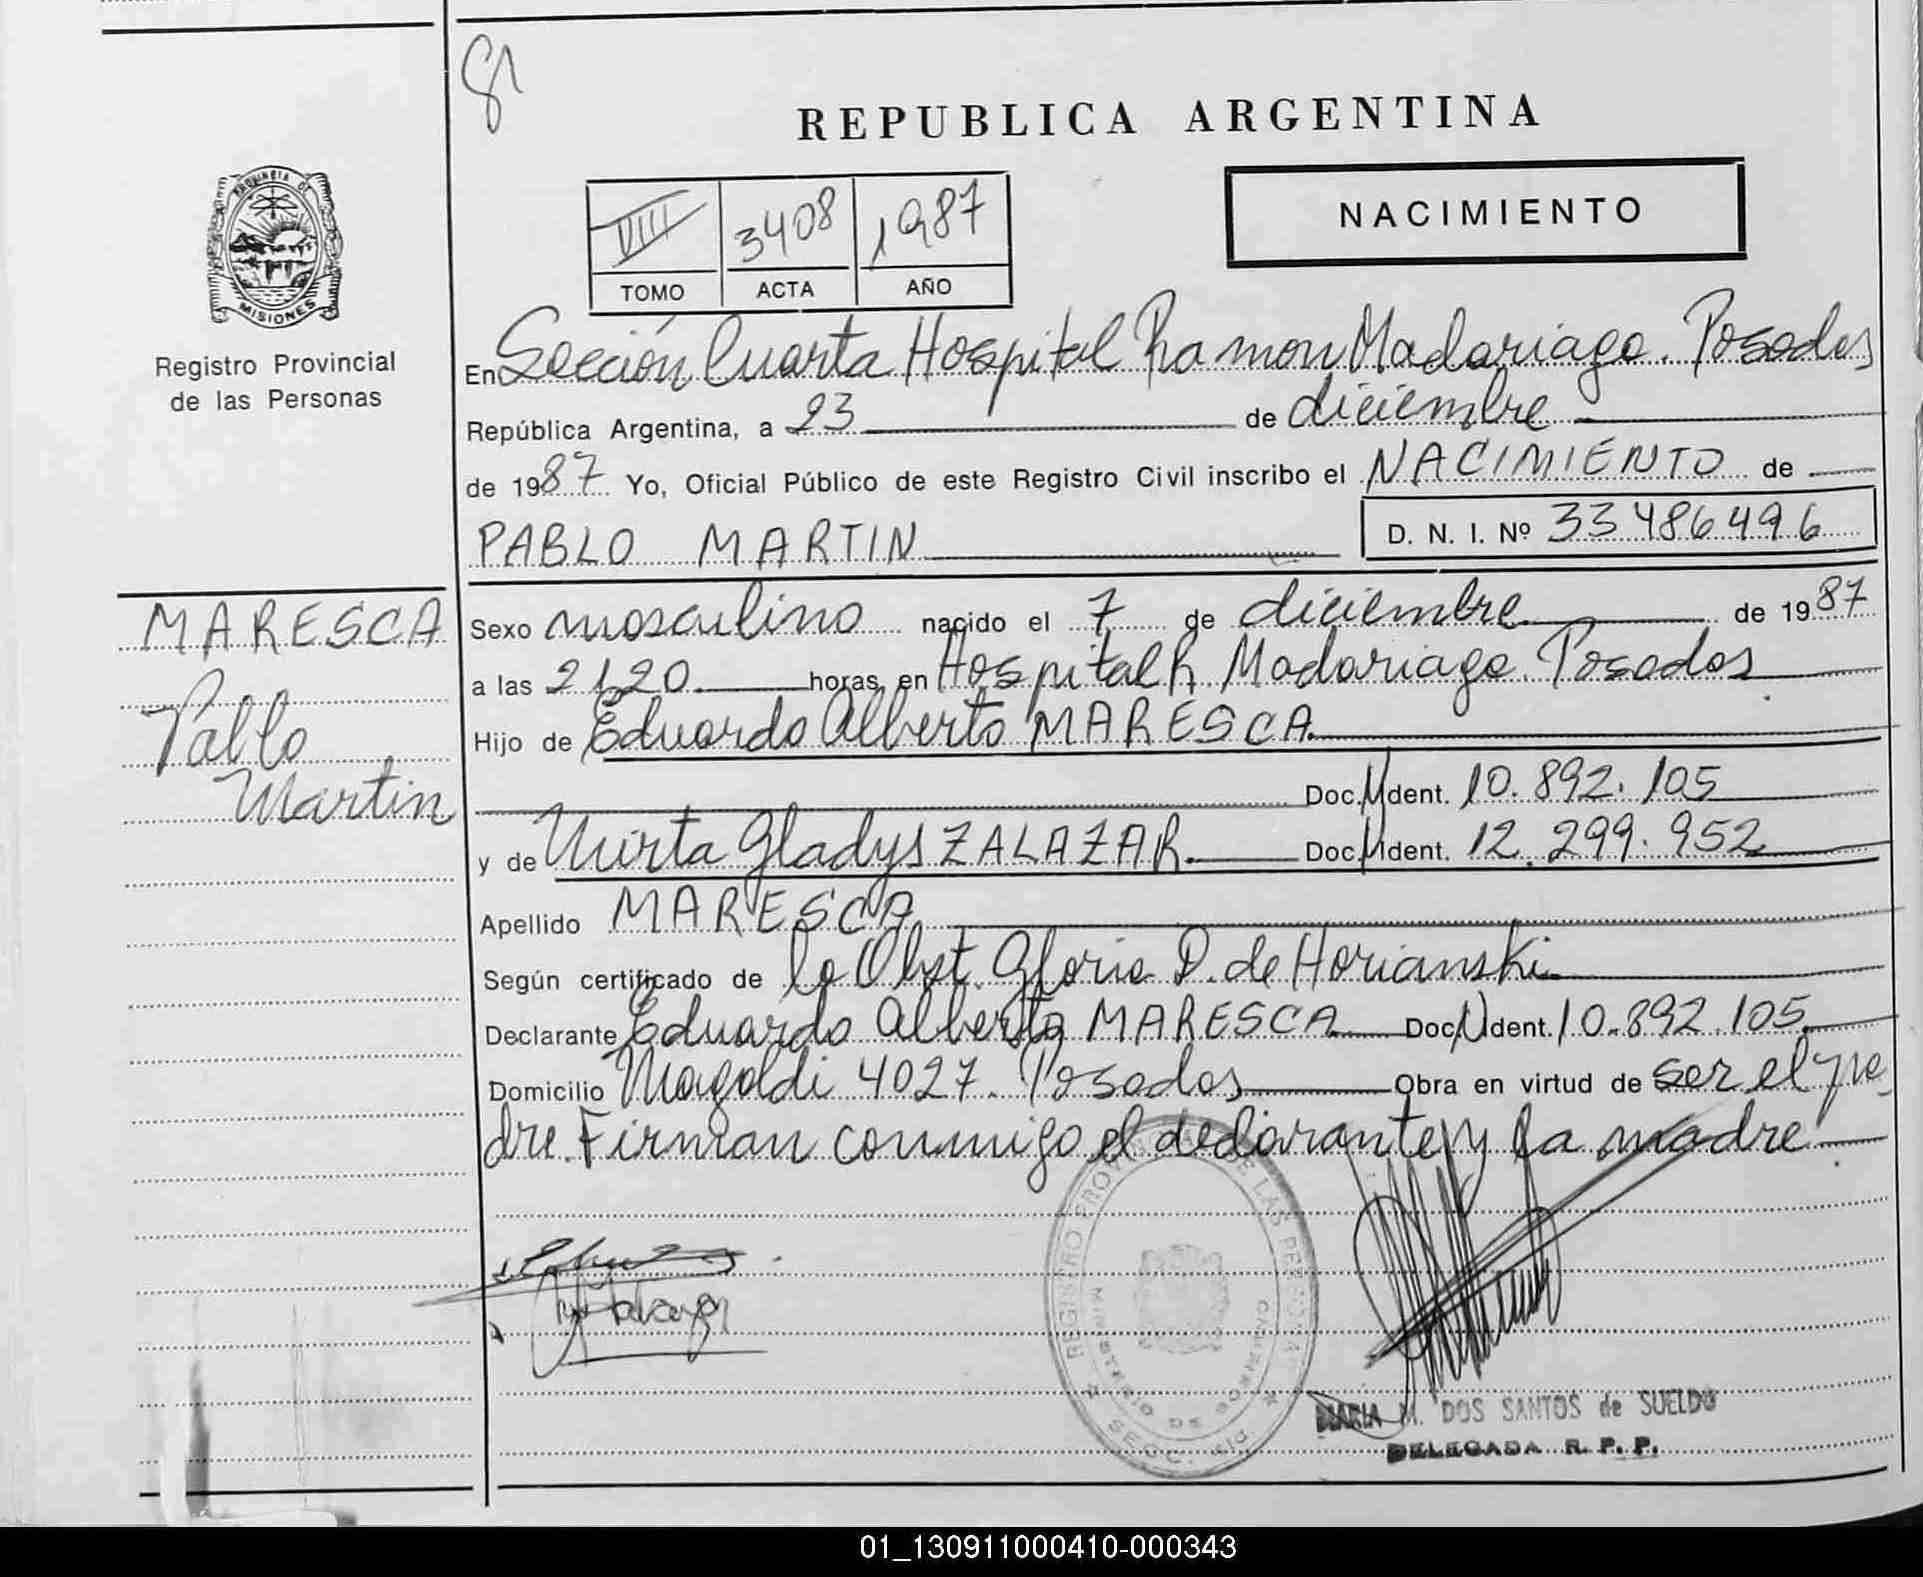 REPUBLICA ARGENTINA
NACIMIENTO
VIII 3408 1987
TOMO ACTA AÑO
PROVINCIA DE MISIONES
Registro Provincial
de las Personas
En Sección Cuarta Hospital Ramon Madariaga. Posadas
República Argentina, a 23 de diciembre
de 1987 Yo, Oficial Público de este Registro Civil inscribo el NACIMIENTO de
PABLO MARTIN D. N. I. Nº 33486496
MARESCA
Pablo
Martin
Sexo masculino nacido el 7 de diciembre de 1987
a las 2120 horas en Hospital R Madariaga. Posadas
Hijo de Eduardo Alberto MARESCA
Doc. Ident. 10.892.105
y de Mirta Gladys ZALAZAR Doc. Ident. 12.299.952
Apellido MARESCA
Según certificado de la Obst. Gloria D. de Horianski
Declarante Eduardo Alberto MARESCA Doc. Ident. 10.892.105
Domicilio Magaldi 4027. Posadas Obra en virtud de ser el pa
dre. Firman conmigo el declarante y la madre
REGISTRO PROVINCIAL DE LAS PERSONAS
MINISTERIO DE GOBIERNO
MARIA M. DOS SANTOS de SUELDO
DELEGADA R. P. P.
01_130911000410-000343